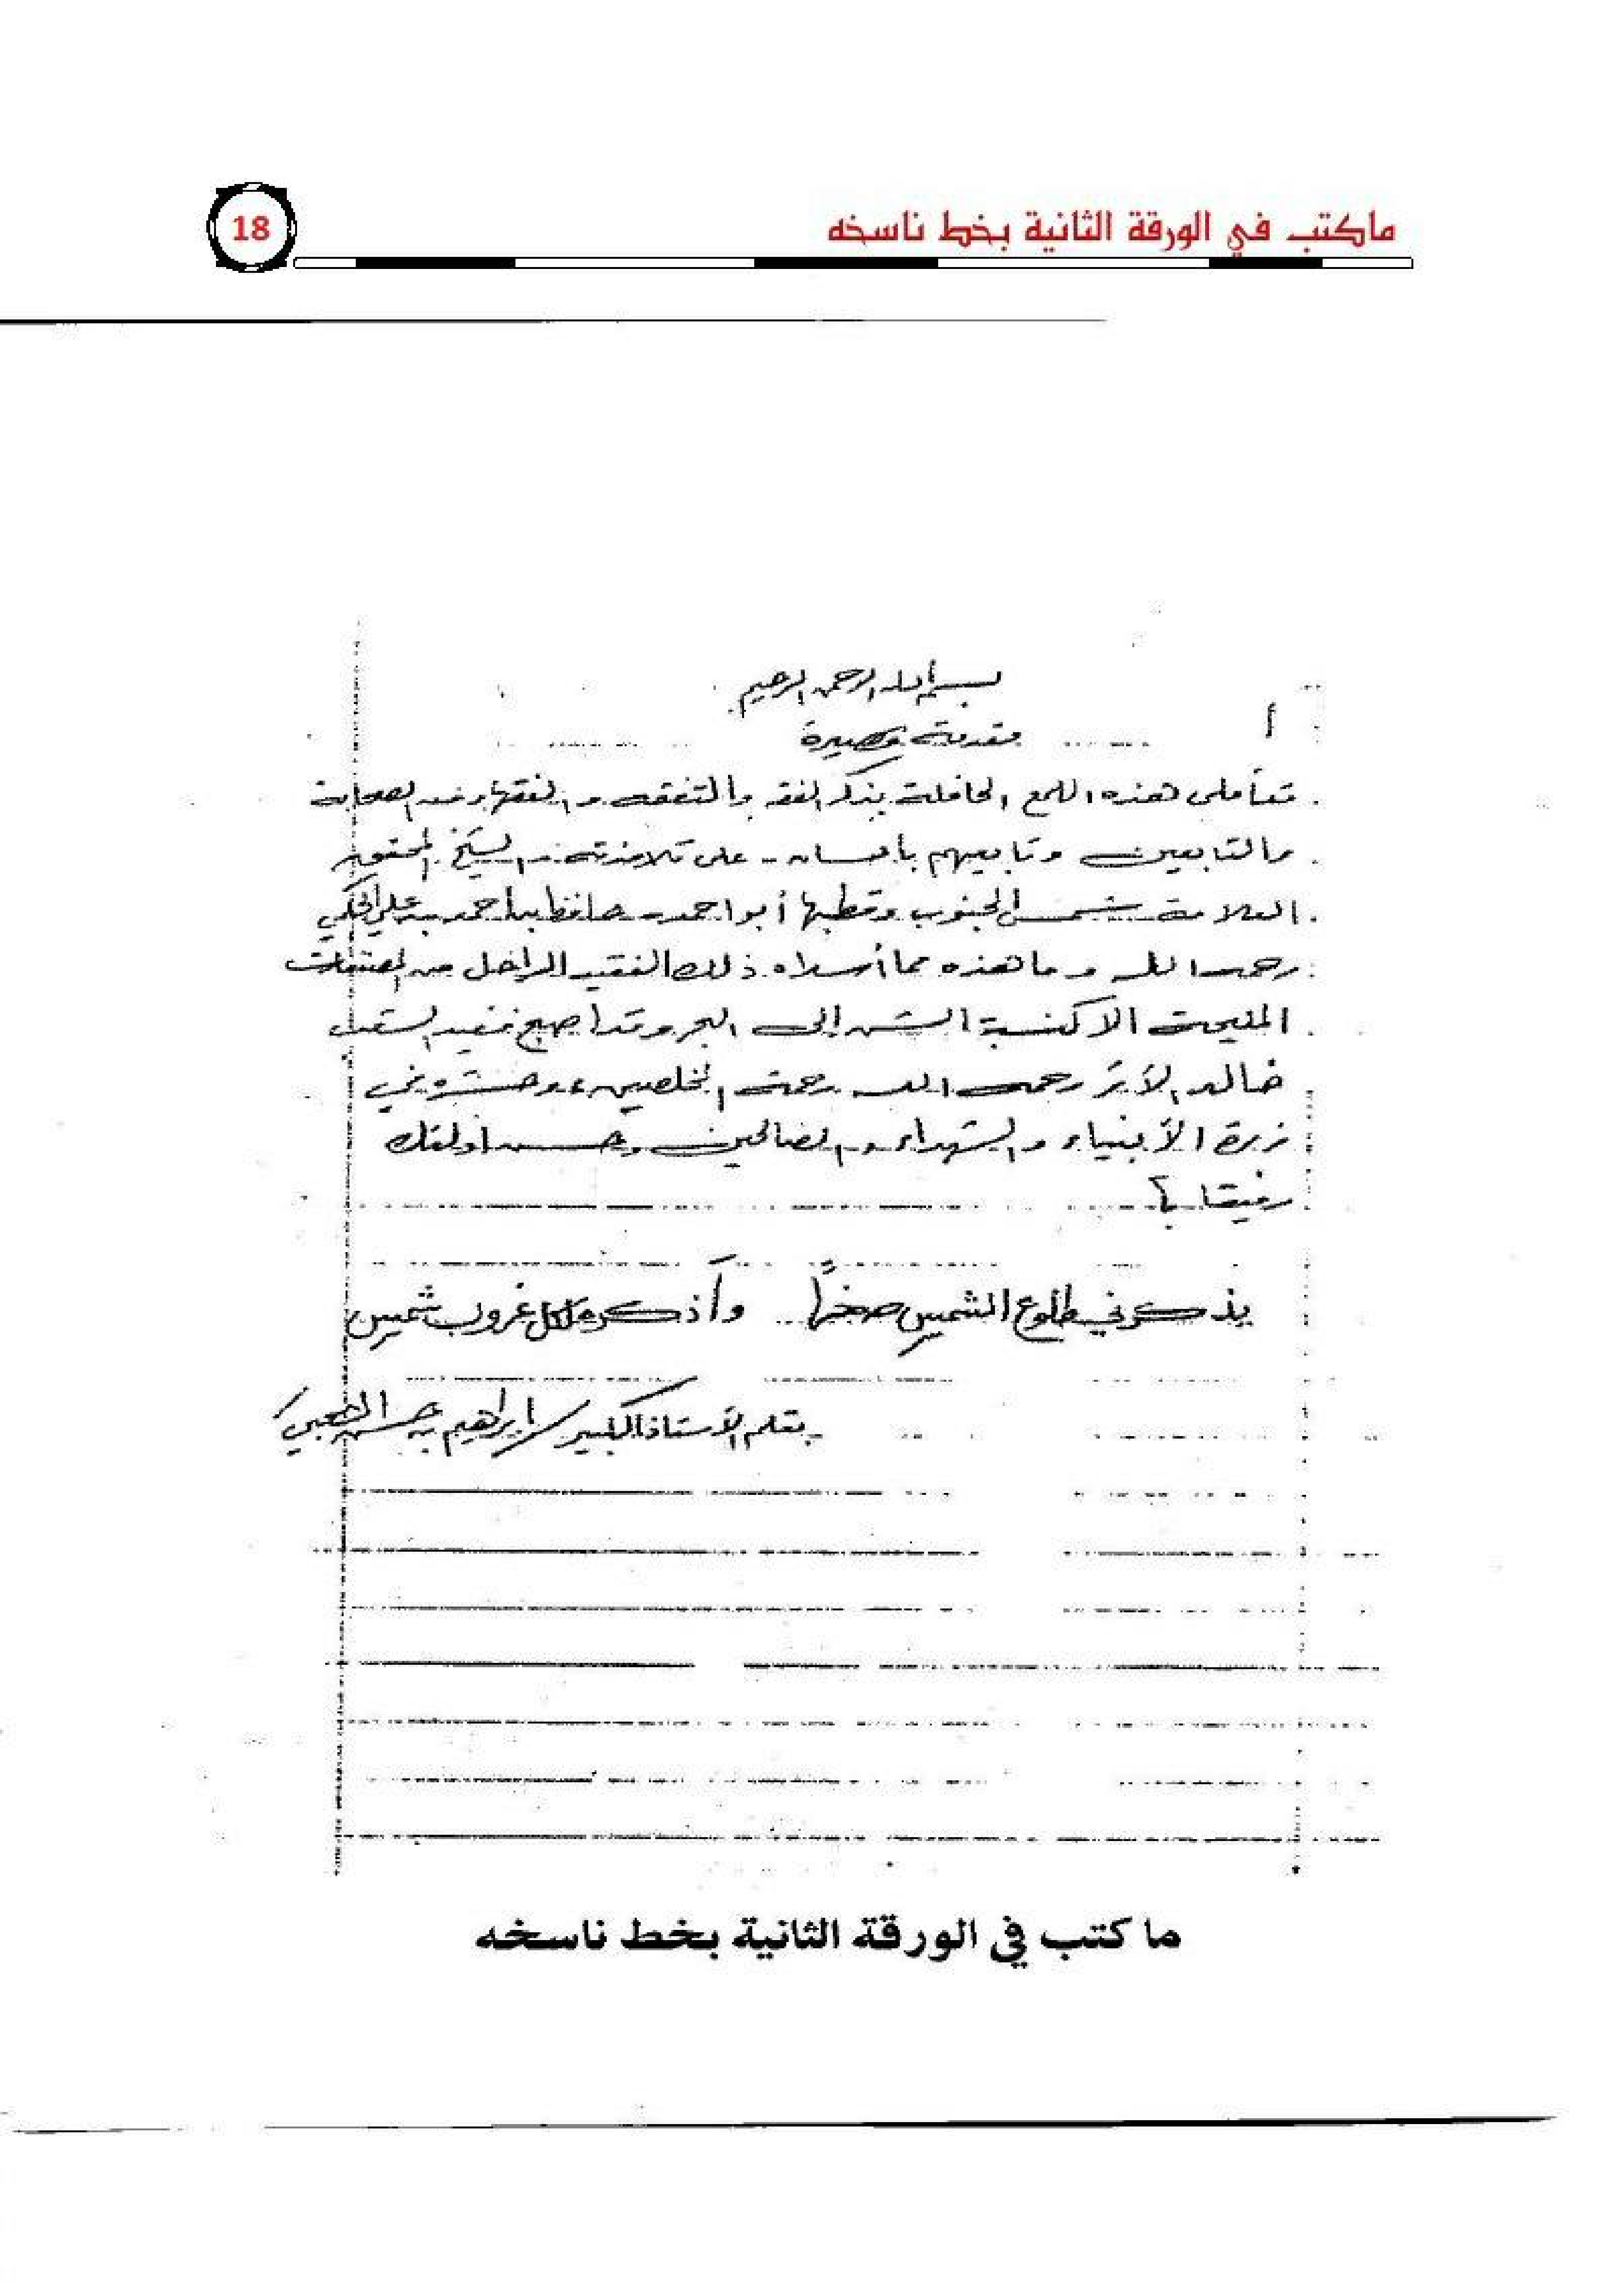 ماكتب في الورقة الثانية بخط ناسخه
18
بسم الله الرحمن الرحيم
أ
مقدمة قصيرة
هذه اللمع الحافلة بذكر الفقه والتفقه والفقهاء من الصحابة
والتابعين وتابعيهم بإحسان - على تلامذته الشيخ
العلامة شمس الجنوب وقطبها أبو احمد حافظ بن احمد بن علي الحكمي
رحمه الله وما هذه مما أسداه ذلك الفقيد الراحل من
المليحة الا كنسبة إلى البحر وقد اصبح فقيد
خالد رحمه الله رحمة المخلصين، وحشره في
زمرة الأنبياء والشهداء والصالحين وحسن اولئك
رفيقا
يذكرني طلوع الشمس صخراً وأذكره لكل غروب شمس
بقلم الأستاذ الكبير / ابراهيم بن حسن الشعبي /
ما كتب في الورقة الثانية بخط ناسخه